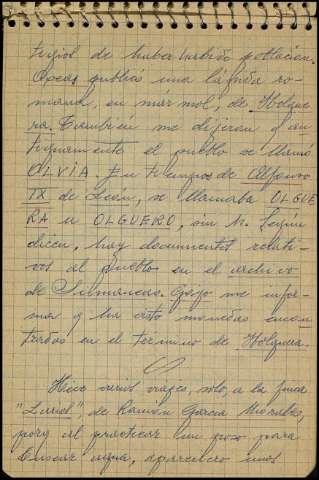 tigiol de haber habido población.
Roca, publicó una lápida ro-
mana, en mármol, de Holgue-
ra. También me dijeron q' an-
tiguamente el pueblo se llamó
OLVIA. En tiempos de Alfonso
IX de León, se llamaba OLGUE-
RA u OLGUERO, sin H. Según
dicen, hay documentos relati-
vos al pueblo en el archivo
de Simancas. Goyo me infor-
ma q' ha visto monedas encon-
tradas en el termino de Holguera.
Hice varios viajes, solo, a la finca
"Lunel", de Ramón Garcia Morales,
porq al practicar un pozo para
buscar agua, aparecieron unos